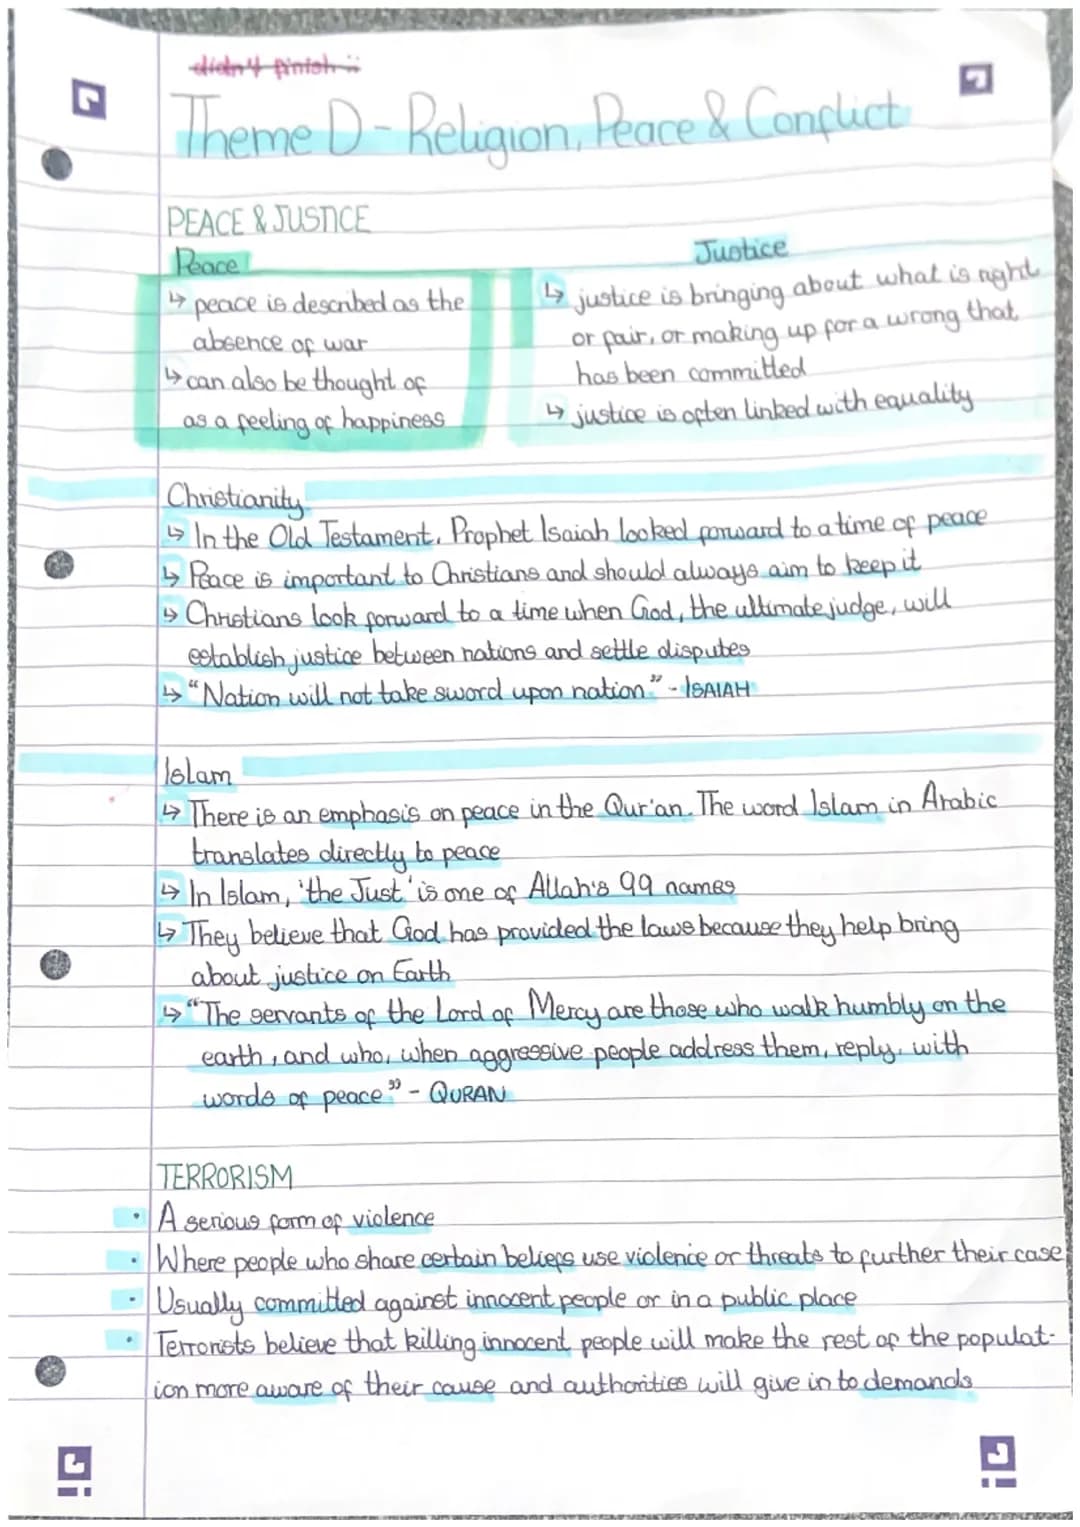 didn't finish ::
Theme D - Religion, Peace & Conflict
PEACE & JUSTICE
Peace
↳ peace is described as the
absence of war
↳ can also be thought of
as a feeling of happiness
Justice
↳ justice is bringing about what is right
or fair, or making up for a wrong that
has been committed
↳ justice is often linked with equality
Christianity
↳ In the Old Testament, Prophet Isaiah looked forward to a time of peace
↳ Peace is important to Christians and should always aim to keep it
↳ Christians look forward to a time when God, the ultimate judge, will
establish justice between nations and settle disputes
↳ "Nation will not take sword upon nation" - ISAIAH
Islam
↳ There is an emphasis on peace in the Qur'an. The word Islam in Arabic
translates directly to peace
↳ In Islam, 'the Just' is one of Allah's 99 names
↳ They believe that God has provided the laws because they help bring
about justice on Earth
↳ "The servants of the Lord of Mercy are those who walk humbly on the
earth, and who, when aggressive people address them, reply, with
words of peace" - QURAN
TERRORISM
• A serious form of violence
• Where people who share certain beliefs use violence or threats to further their case
• Usually committed against innocent people or in a public place
• Terrorists believe that killing innocent people will make the rest of the populat-
ion more aware of their cause and authorities will give in to demands